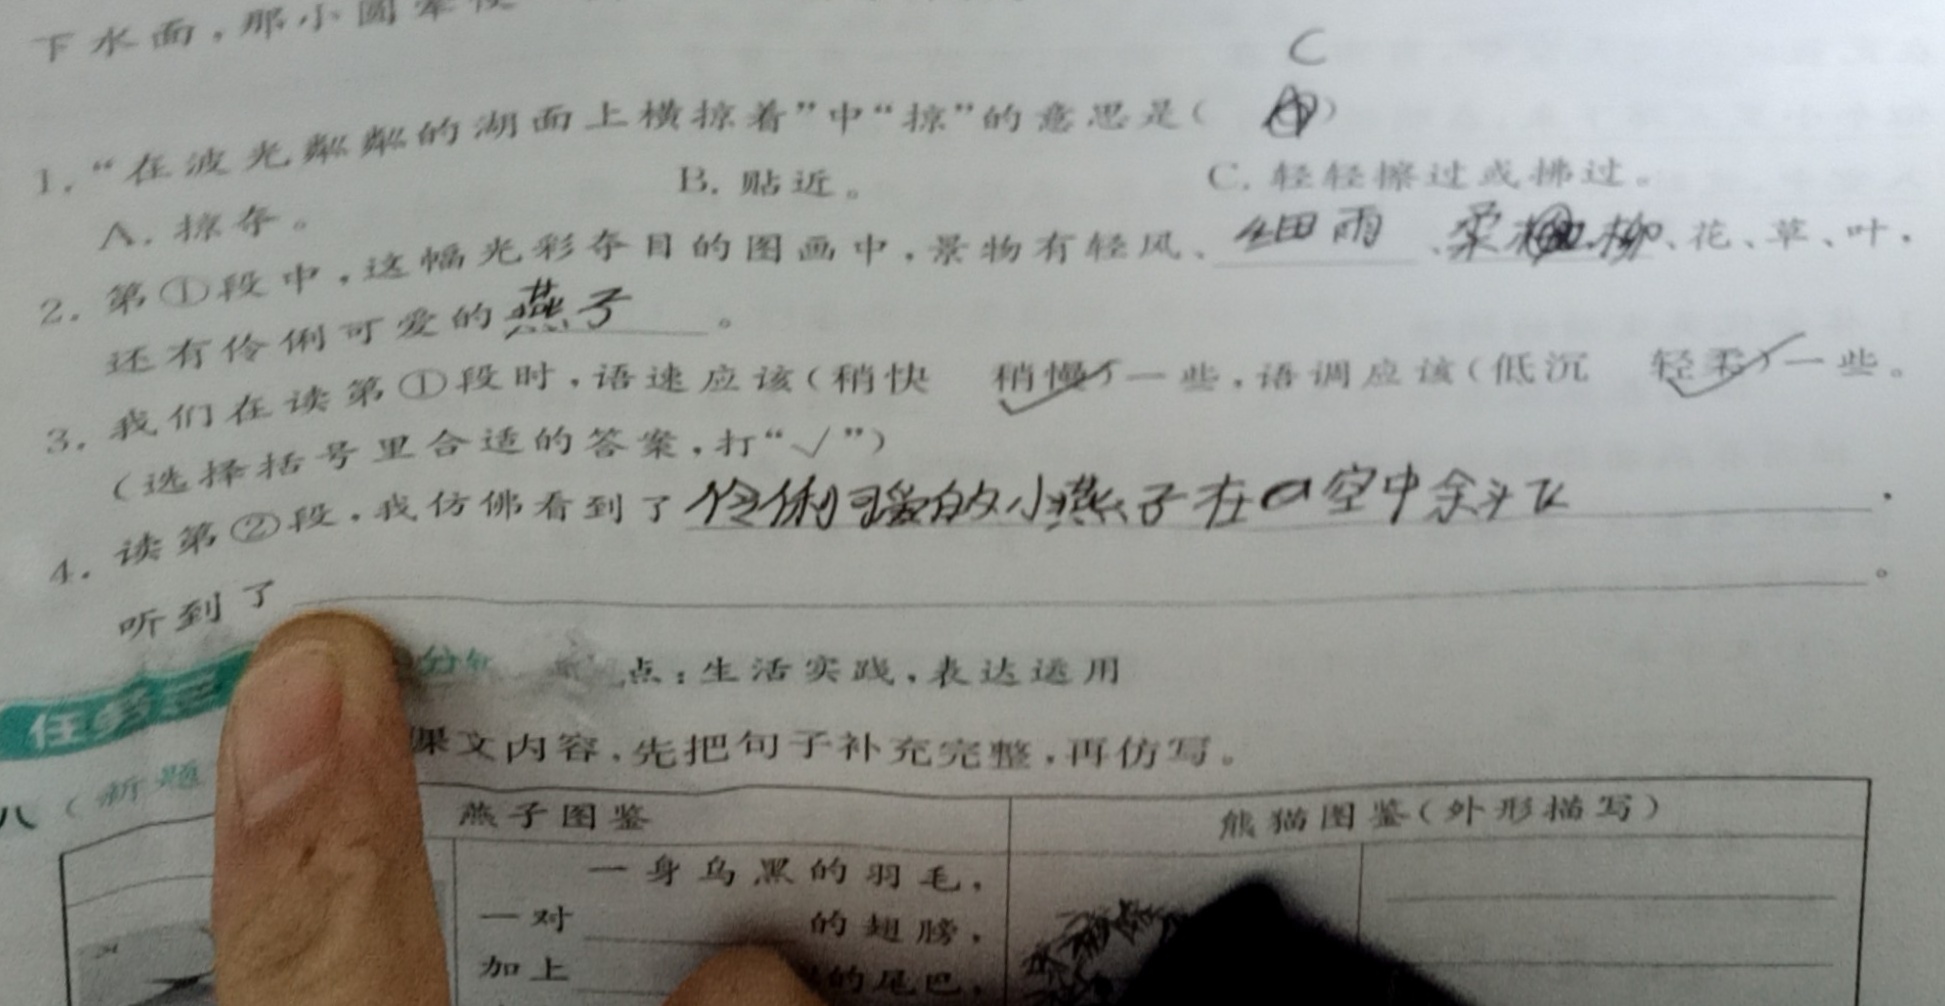 下水面，那小圆晕
C
1.“在波光粼粼的湖面上横掠着”中“掠”的意思是（ ）
A. 掠夺。 B. 贴近。 C. 轻轻擦过或拂过。
2. 第①段中，这幅光彩夺目的图画中，景物有轻风、细雨、柔柳、花、草、叶，
还有伶俐可爱的燕子。
3. 我们在读第①段时，语速应该（稍快 稍慢✓）一些，语调应该（低沉 轻柔✓）一些。
（选择括号里合适的答案，打“√”）
4. 读第②段，我仿佛看到了伶俐可爱的小燕子在空中斜飞，
听到了 。
任务三 点：生活实践，表达运用
八（新题 课文内容，先把句子补充完整，再仿写。
燕子图鉴 熊猫图鉴（外形描写）
一身乌黑的羽毛，
一对 的翅膀，
加上 的尾巴，